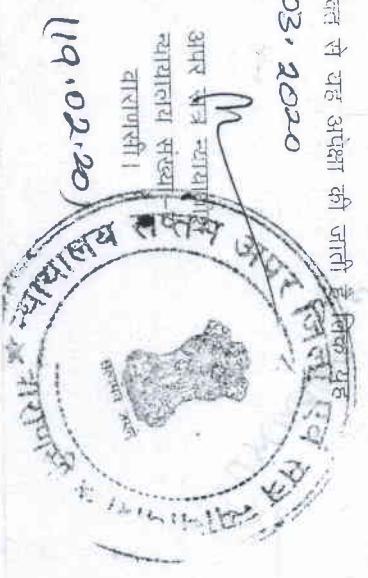 पत से यह अपेक्षा की जाती है कि यह
03.2020
अपर सत्र न्यायाधीश
न्यायालय संख्या-
वाराणसी।
(19.02.20)
न्यायालय सप्तम अपर जिला एवं सत्र न्यायाधीश
वाराणसी